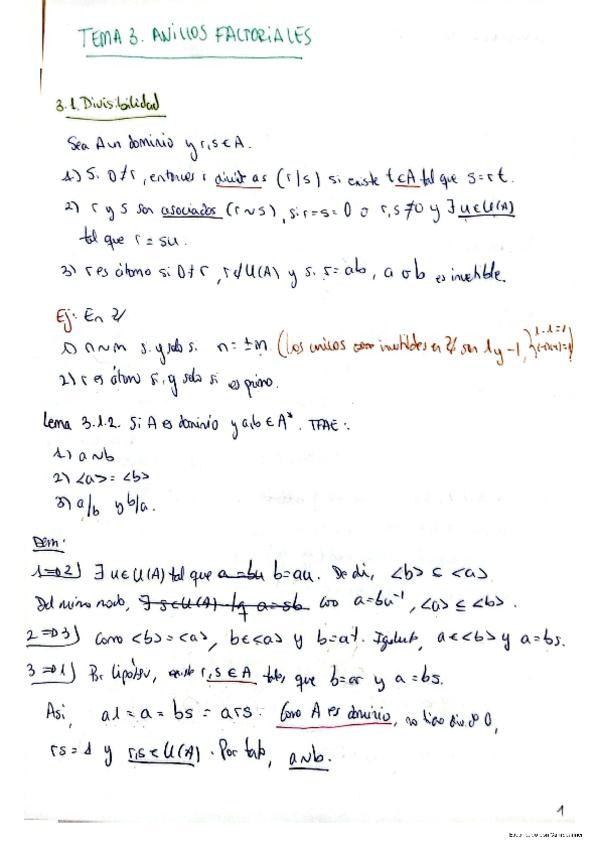 TEMA 3. ANILLOS FACTORIALES
3.1. Divisibilidad
Sea A un dominio y r,s ∈ A.
1) Si 0≠r, entonces r divide a s (r/s) si existe t∈A tal que s=rt.
2) r y s son asociados (r∼s), si r=s=0 o r,s≠0 y ∃ u∈U(A)
tal que r = su.
3) r es átomo si 0≠r, r∉U(A) y si r=ab, a o b es invertible.
Ej: En ℤ
1) n∼m si y solo si n=±m. (Los unicos invertibles en ℤ son 1 y -1, 1·1=1
(-1)(-1)=1)
2) r es átomo si y solo si es primo.
Lema 3.1.2. Si A es dominio y a,b∈A*. TFAE:
1) a∼b
2) <a>=<b>
3) a/b y b/a.
Dem:
1⇒2) ∃ u∈U(A) tal que a=bu b=au. De ahí, <b>⊆<a>
Del mismo modo, ∃ s∈U(A) tq a=sb como a=bu⁻¹, <a>⊆<b>.
2⇒3) Como <b>=<a>, b∈<a> y b=ar. Igualmente, a∈<b> y a=bs.
3⇒1) Por hipótesis, existe r,s∈A tales que b=ar y a=bs.
Asi, a1=a=bs=ars. Como A es dominio, no tiene div. de 0,
rs=1 y r,s∈U(A). Por tanto, a∼b.
1